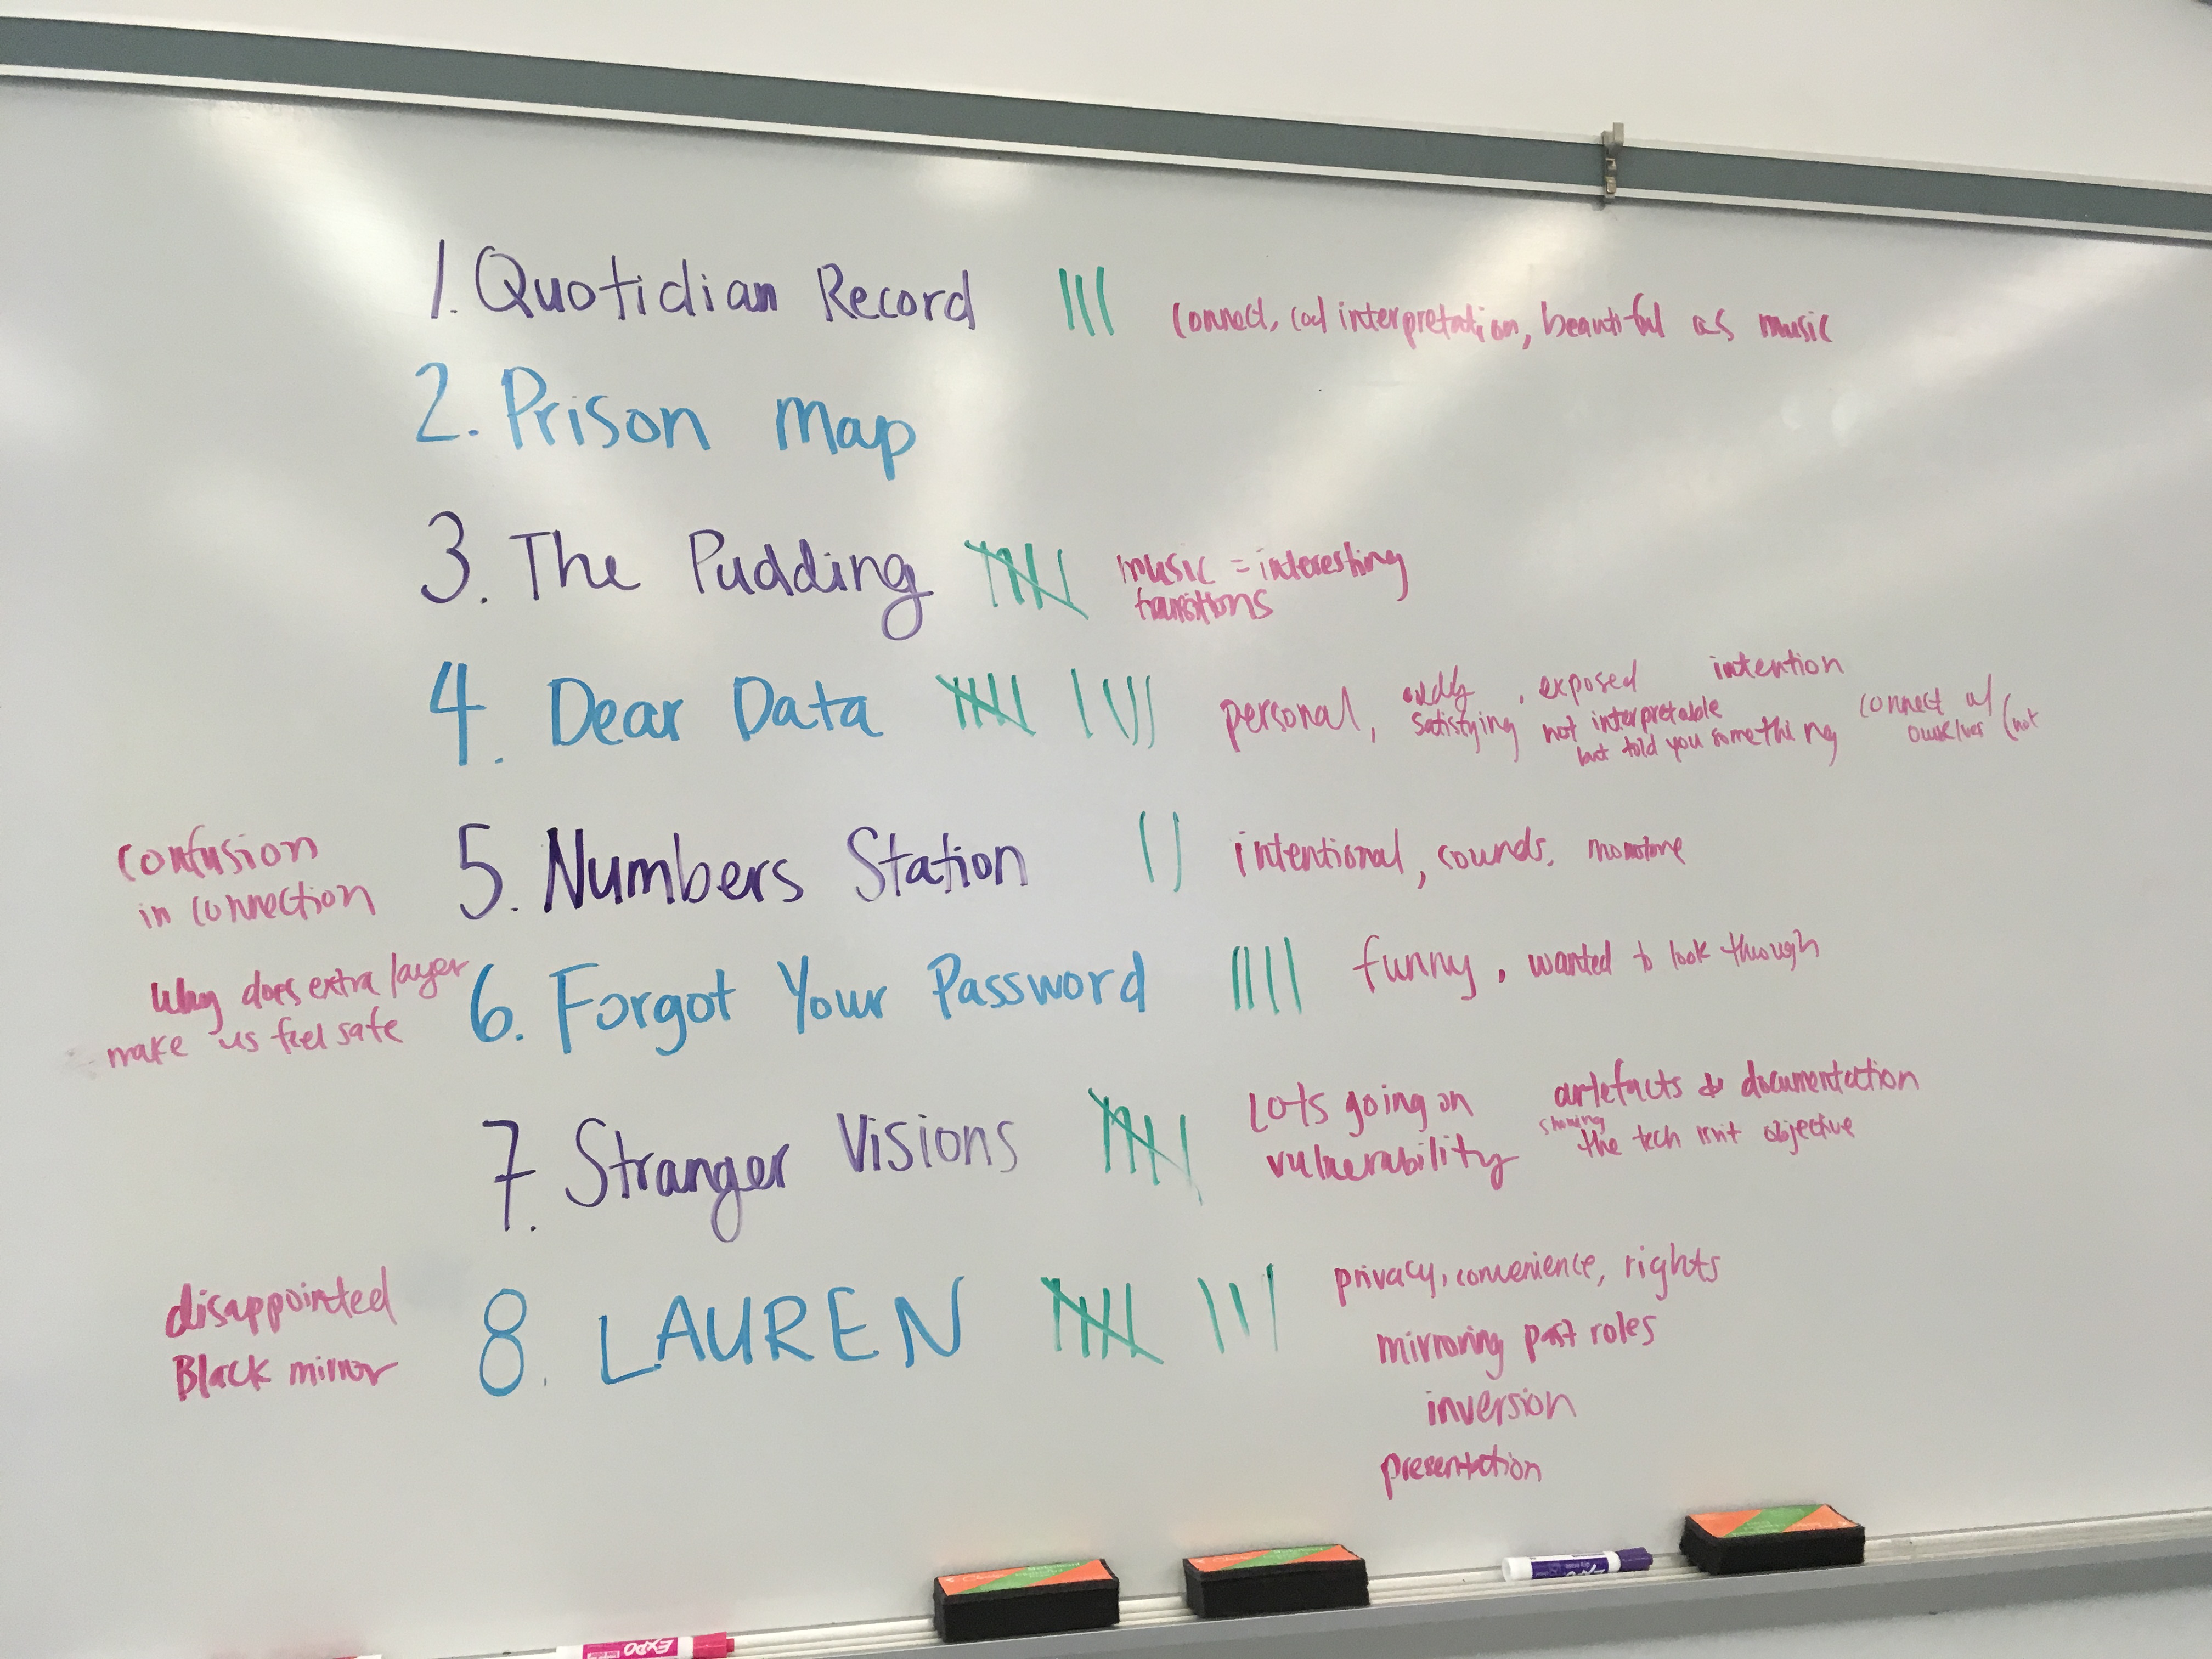 1. Quotidian Record
connect, cool interpretation, beautiful as music
2. Prison Map
3. The Pudding
music = interesting
transitions
4. Dear Data
personal, oddly satisfying, exposed intention
not interpretable
but told you something
connect w/
ourselves (not
confusion
in connection
5. Numbers Station
intentional, sounds, monotone
Why does extra layer
make us feel safe
6. Forgot Your Password
funny, wanted to look through
7. Stranger Visions
Lots going on
vulnerability
artefacts & documentation
showing the tech isn't objective
disappointed
Black mirror
8. LAUREN
privacy, convenience, rights
mirroring past roles
inversion
presentation
EXPO
EXPO